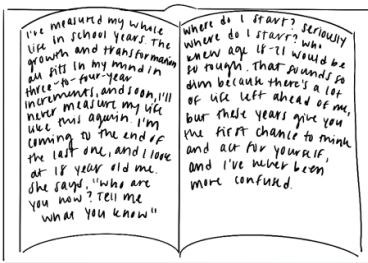 I've measured my whole
life in school years. The
growth and transformation
all sits in my mind in
three-to-four-year
increments, and soon, I'll
never measure my life
like this again. I'm
coming to the end of
the last one, and I look
at 18 year old me.
she says, "who are
you now? Tell me
what you know"
where do I start? seriously
where do I start? who
knew age 18-21 would be
so tough. That sounds so
dim because there's a lot
of life left ahead of me,
but these years give you
the first chance to think
and act for yourself,
and I've never been
more confused.